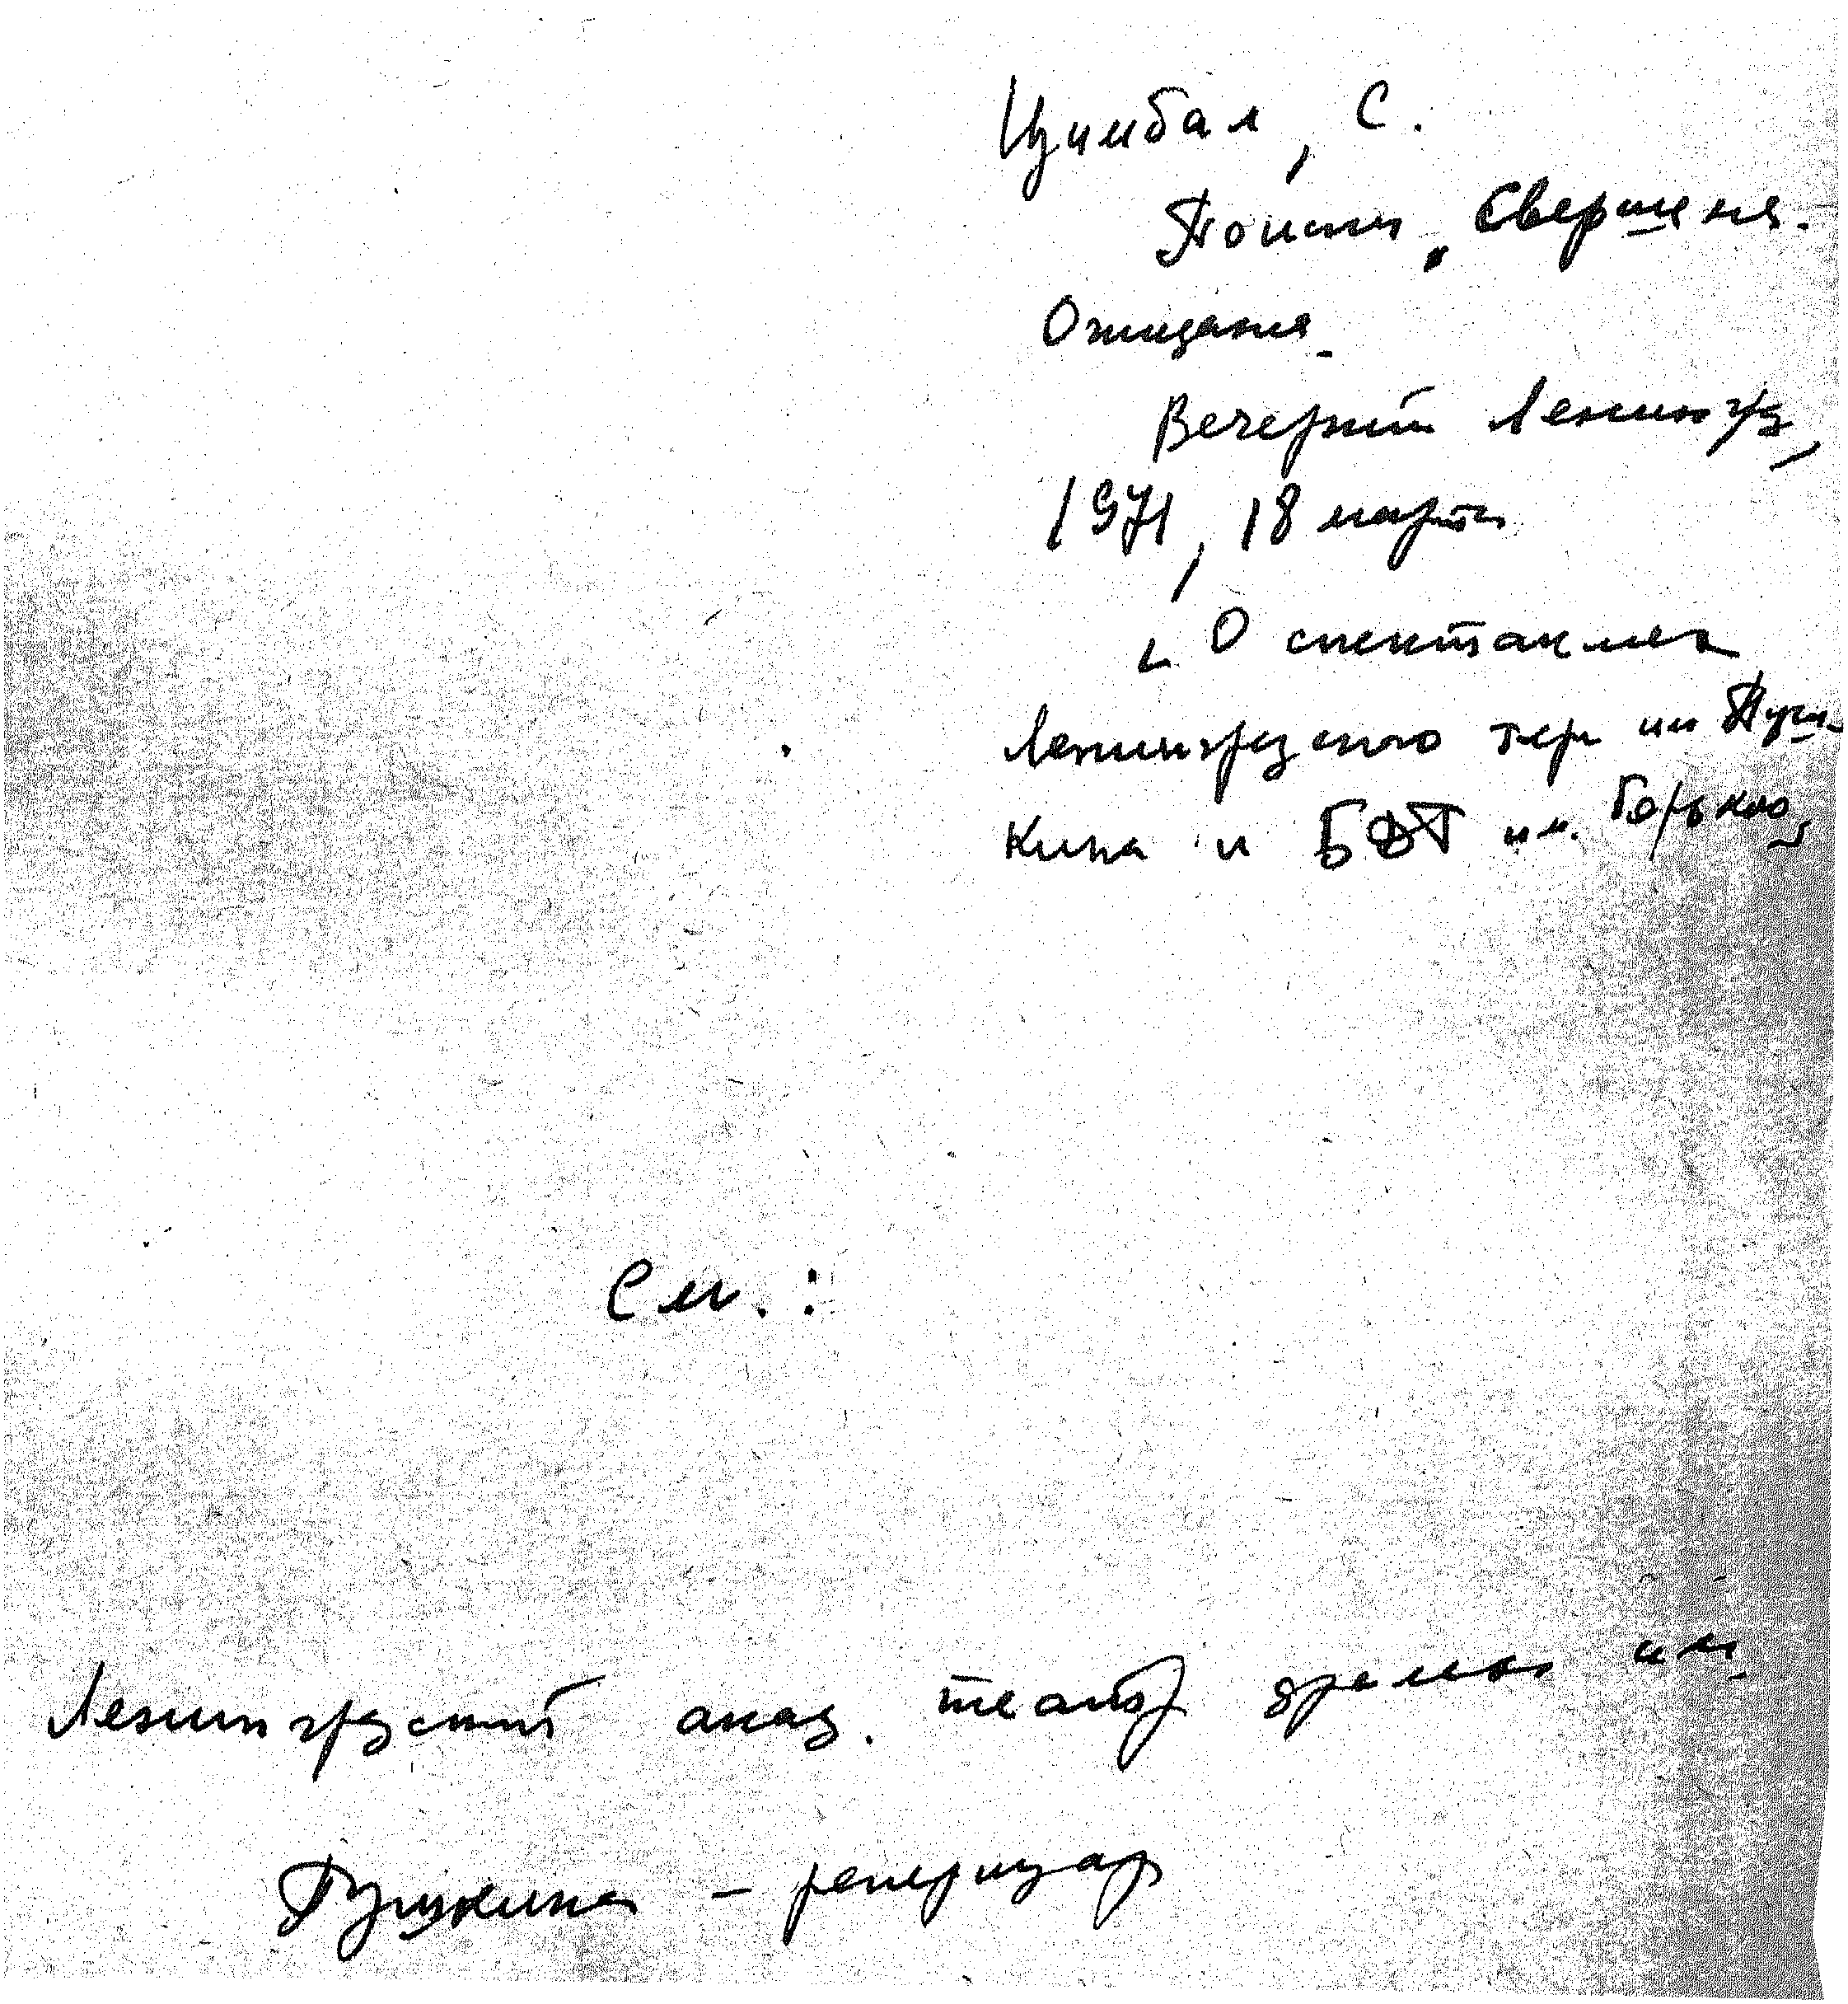 Цимбал, С.
Поиски, Свершения.
Ожидания.
Вечерний Ленинград,
1971, 18 марта
О спектаклях
Ленинградского театра им Пуш-
кина и БДТ им. Горького
См. :
Ленинградский акад. театр драмы им.
Пушкина – репертуар